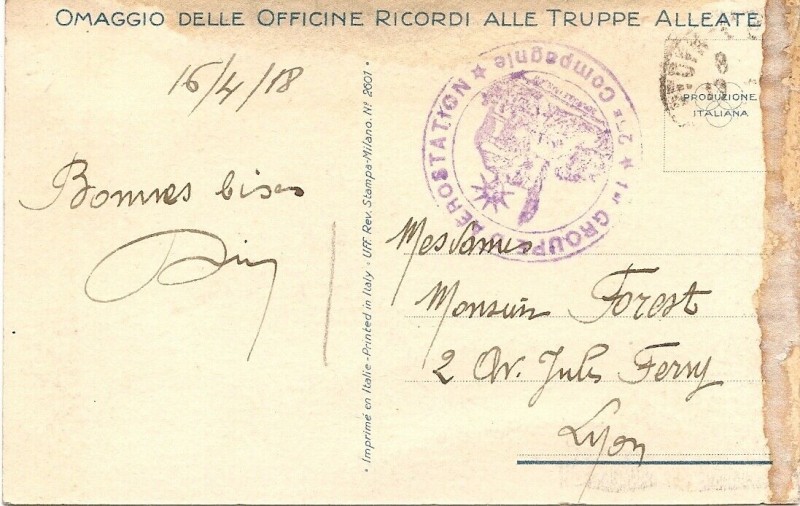 OMAGGIO DELLE OFFICINE RICORDI ALLE TRUPPE ALLEATE
16/4/18
Bonnes bises
• Imprimé en Italie - Printed in Italy • UFF. Rev. Stampa-Milano. Nº 2601 •
★ 1er GROUPE D'AÉROSTATION ★ 2me Compagnie
PRODUZIONE
ITALIANA
Mesdames
Monsieur Forest
2 Av. Jules Ferry
Lyon